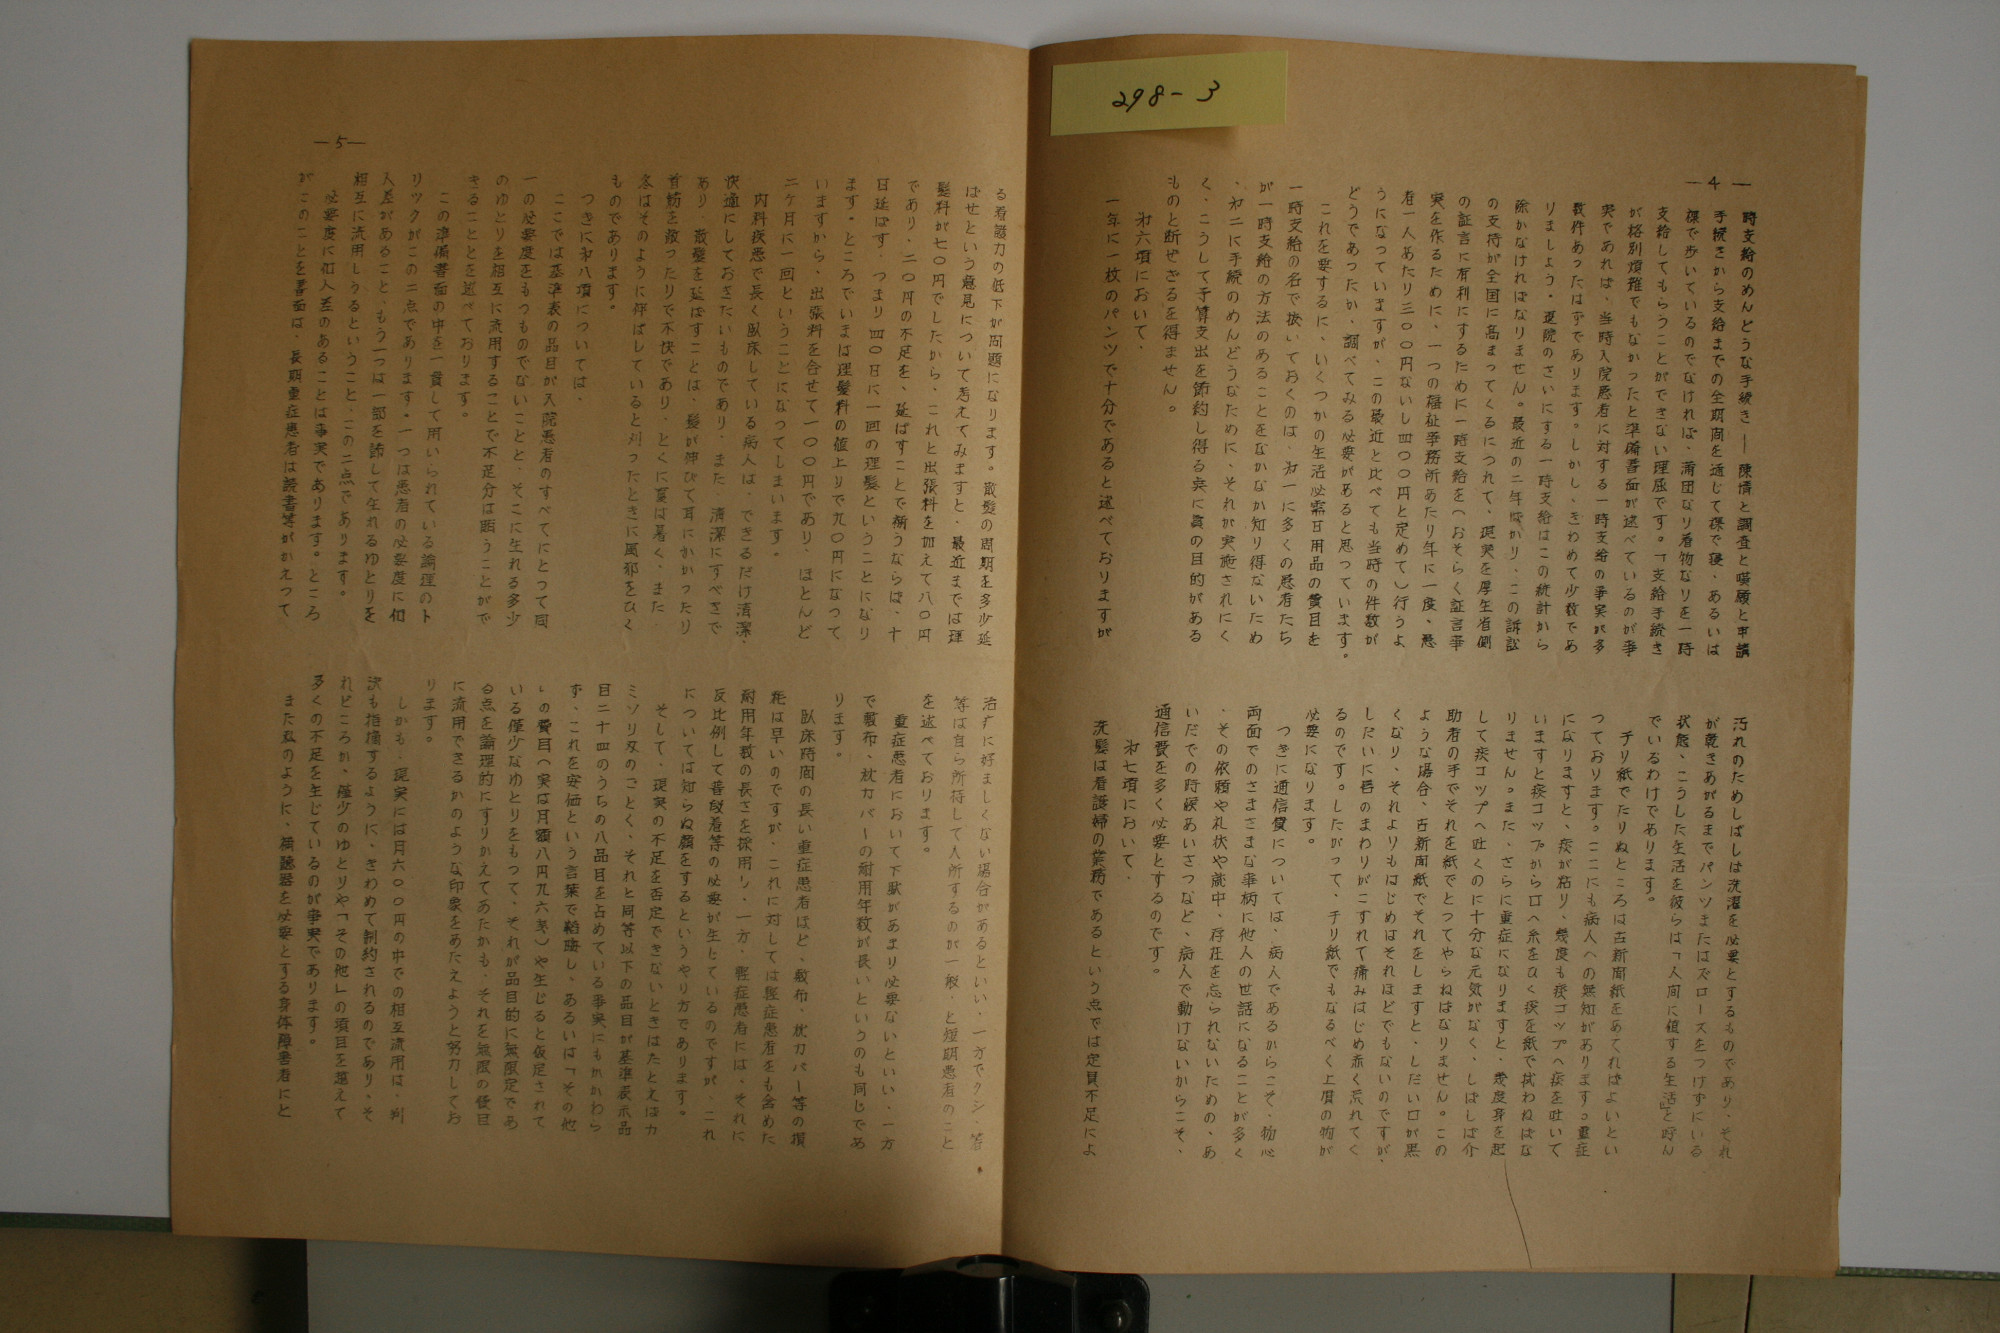 298-3
—4—
時支給のめんどうな手続き——陳情と調査と嘆願と申請
手続きから支給までの全期間を通じて裸で寝、あるいは
裸で歩いているのでなければ、蒲団なり着物なりを一時
支給してもらうことができない理屈です。「支給手続き
が格別煩雑でもなかったと準備書面が述べているのが事
実であれば、当時入院患者に対する一時支給の事実が多
数件あったはずであります。しかし、きわめて少数であ
りましよう・更院のさいにする一時支給はこの統計から
除かなければなりません。最近の二年ばかり、この訴訟
の支持が全国に高まってくるにつれて、現実を厚生省側
の証言に有利にするために一時支給を(おそらく証言事
実を作るために、一つの福祉事務所あたり年に一度、患
者一人あたり三〇〇円ないし四〇〇円と定めて)行うよ
うになっていますが、この最近と比べても当時の件数が
どうであったか、調べてみる必要があると思っています。
これを要するに、いくつかの生活必需日用品の費目を
一時支給の名で抜いておくのは、才一に多くの患者たち
が一時支給の方法のあることをなかなか知り得ないため
、才二に手続のめんどうなために、それが実施されにく
く、こうして予算支出を節約し得る点に真の目的がある
ものと断ぜざるを得ません。
才六項において、
一年に一枚のパンツで十分であると述べておりますが
汚れのためしばしば洗濯を必要とするものであり、それ
が乾きあがるまでパンツまたはズロースをつけずにいる
状態、こうした生活を彼らは「人間に値する生活」と呼ん
でいるわけであります。
チリ紙でたりぬところは古新聞紙をあてればよいとい
つております。ここにも病人への無知があります。重症
になりますと、痰が粘り、幾度も痰コップへ痰を吐いて
いますと痰コップから口へ糸をひく痰を紙で拭わねばな
りません。また、さらに重症になりますと、幾度身を起
して痰コップへ吐くのに十分な元気がなく、しばしば介
助者の手でそれを紙でとつてやらねばなりません。この
ような場合、古新聞紙でそれをしますと、しだい口が黒
くなり、それよりもはじめはそれほどでもないのですが、
しだいに唇のまわりがこすれて痛みはじめ赤く荒れてく
るのです。したがって、チリ紙でもなるべく上質の物が
必要になります。
つぎに通信費については、病人であるからこそ、物心
両面でのさまざまな事柄に他人の世話になることが多く
、その依頼や礼状や歳中、存在を忘られないための、あ
いだでの時候あいさつなど、病人で動けないからこそ、
通信費を多く必要とするのです。
才七項において、
洗髪は看護婦の業務であるという点では定員不足によ
—5—
る看護力の低下が問題になります。散髪の周期を多少延
ばせという意見について考えてみますと、最近までは理
髪料が七〇円でしたから、これと出張料を加えて八〇円
であり、二〇円の不足を、延ばすことで補うならば、十
日延ばす、つまり四〇日に一回の理髪ということになり
ます。ところでいまは理髪料の値上りで九〇円になって
いますから、出張料を合せて一〇〇円であり、ほとんど
二ケ月に一回ということになってしまいます。
内科疾患で長く臥床している病人は、できるだけ清潔、
快適にしておきたいものであり、また、清潔にすべきで
あり、散髪を延ばすことは、髪が伸びて耳にかかったり
首筋を被ったりで不快であり、とくに夏は暑く、また、
冬はそのように伸ばしていると刈ったときに風邪をひく
ものであります。
つぎに才八項については、
ここでは基準表の品目が入院患者のすべてにとつて同
一の必要度をもつものでないことと、そこに生れる多少
のゆとりを相互に流用することで不足分は賄うことがで
きることとを述べております。
この準備書面の中を一貫して用いられている論理のト
リックがこの二点であります。一つは患者の必要度に個
人差があること、もう一つは一部を節して生れるゆとりを
相互に流用しうるということ、この二点であります。
必要度に個人差のあることは事実であります。ところ
がこのことを書面は、長期重症患者は読書等がかえって
治すに好ましくない場合があるといい、一方でタンゝ等
等は自ら所持して入所するのが一般、と短期患者のこと
を述べております。
重症患者において下駄があまり必要ないといい、一方
で敷布、枕カバーの耐用年数が長いというのも同じであ
ります。
臥床時間の長い重症患者ほど、敷布、枕カバー等の損
耗は早いのですが、これに対しては軽症患者をも含めた
耐用年数の長さを採用し、一方、軽症患者には、それに
反比例して普段着等の必要が生じているのですが、これ
については知らぬ顔をするというやり方であります。
そして、現実の不足を否定できないときはたとえばカ
ミソリ刃のごとく、それと同等以下の品目が基準表ホ品
目二十四のうちの八品目を占めている事実にもかかわら
ず、これを安価という言葉で韜晦し、あるいは「その他
」の費目へ実は月額八円九六銭)や生じると仮定されて
いる僅少なゆとりをもつて、それが品目的に無限定であ
る点を論理的にすりかえてあたかも、それを無限の費目
に流用できるかのような印象をあたえようと努力してお
ります。
しかも、現実には月六〇〇円の中での相互流用は、判
決も指摘するように、きわめて制約されるのであり、そ
れどころか、僅少のゆとりや「その他」の項目を越えて
多くの不足を生じているのが事実であります。
また次のように、補聴器を必要とする身体障害者にと